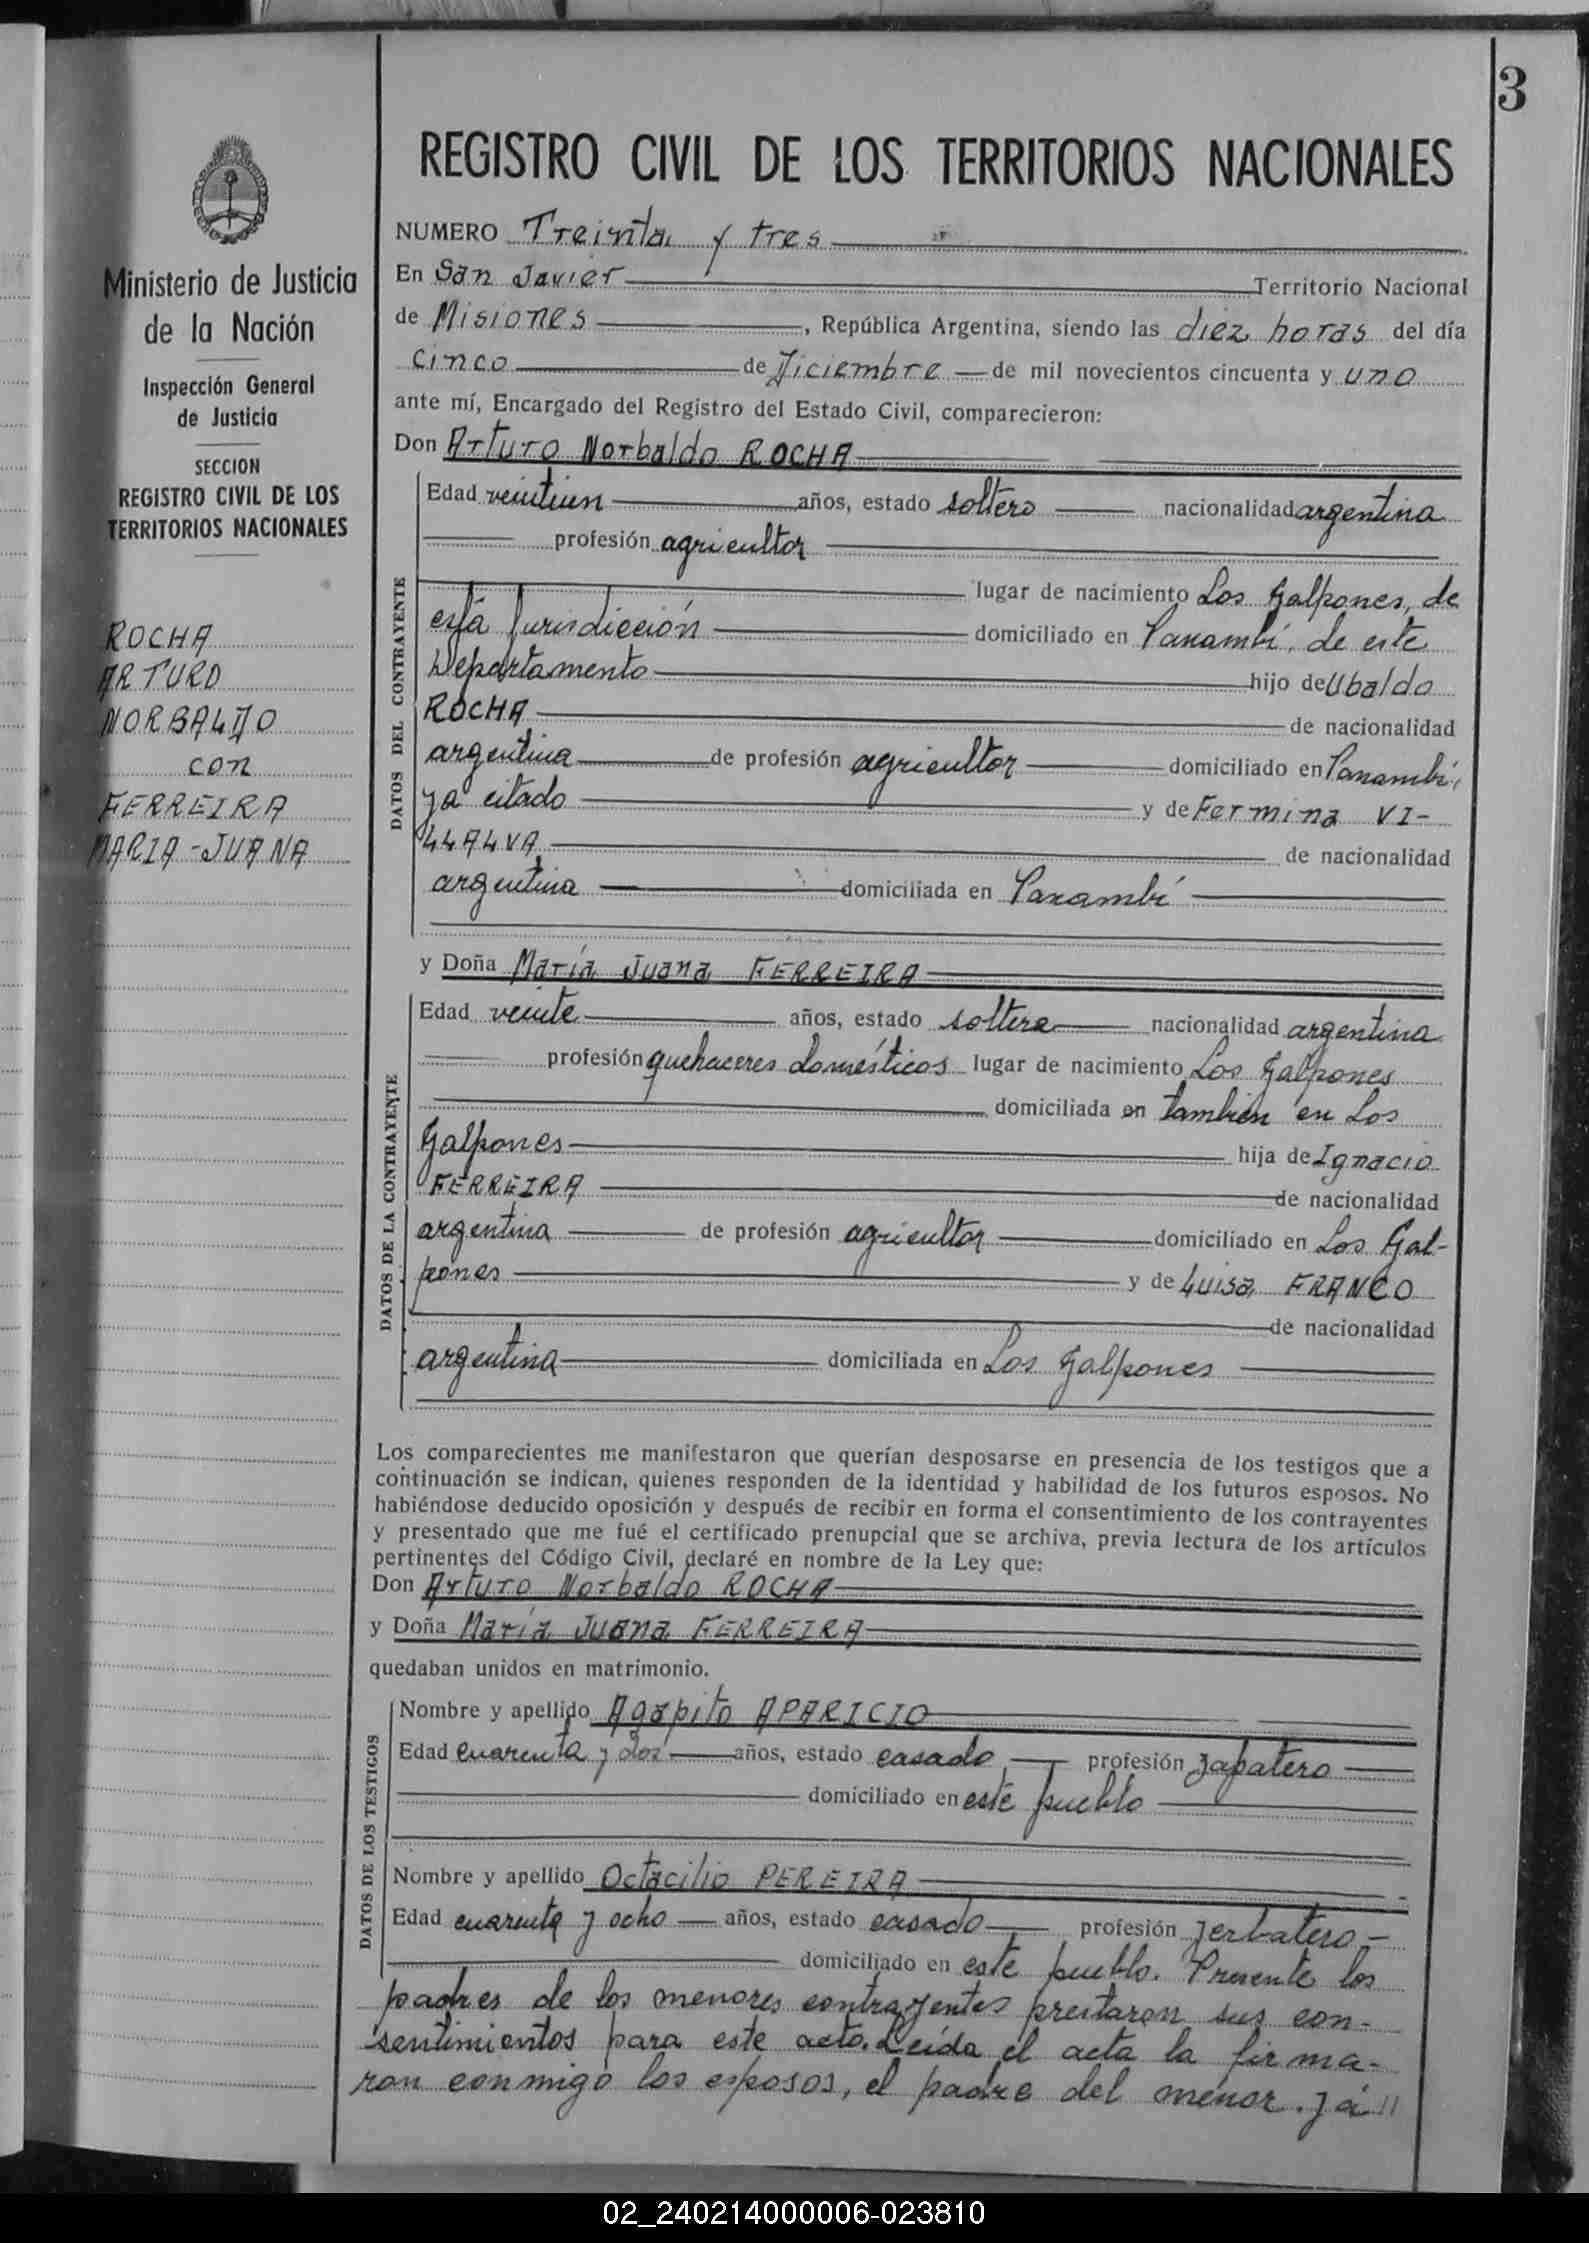 3
REGISTRO CIVIL DE LOS TERRITORIOS NACIONALES
Ministerio de Justicia
de la Nación
Inspección General
de Justicia
SECCION
REGISTRO CIVIL DE LOS
TERRITORIOS NACIONALES
ROCHA
ARTURO
NORBALDO
con
FERREIRA
MARIA-JUANA
NUMERO Treinta y tres
En San Javier Territorio Nacional
de Misiones, República Argentina, siendo las diez horas del día
cinco de Diciembre de mil novecientos cincuenta y uno
ante mí, Encargado del Registro del Estado Civil, comparecieron:
Don Arturo Norbaldo ROCHA
DATOS DEL CONTRAYENTE
Edad veintiun años, estado soltero nacionalidad argentina
profesión agricultor
lugar de nacimiento Los Galpones, de
está Jurisdicción domiciliado en Panambí, de este
Departamento hijo de Ubaldo
ROCHA de nacionalidad
argentina de profesión agricultor domiciliado en Panambí,
ya citado y de Fermina VI-
LLALVA de nacionalidad
argentina domiciliada en Panambí
y Doña María Juana FERREIRA
DATOS DE LA CONTRAYENTE
Edad veinte años, estado soltera nacionalidad argentina
profesión quehaceres domésticos lugar de nacimiento Los Galpones
domiciliada en también en Los
Galpones hija de Ignacio
FERREIRA de nacionalidad
argentina de profesión agricultor domiciliado en Los Gal-
pones y de Luisa FRANCO
de nacionalidad
argentina domiciliada en Los Galpones
Los comparecientes me manifestaron que querían desposarse en presencia de los testigos que a
continuación se indican, quienes responden de la identidad y habilidad de los futuros esposos. No
habiéndose deducido oposición y después de recibir en forma el consentimiento de los contrayentes
y presentado que me fué el certificado prenupcial que se archiva, previa lectura de los artículos
pertinentes del Código Civil, declaré en nombre de la Ley que:
Don Arturo Norbaldo ROCHA
y Doña María Juana FERREIRA
quedaban unidos en matrimonio.
DATOS DE LOS TESTIGOS
Nombre y apellido Agapito APARICIO
Edad cuarenta y dos años, estado casado profesión zapatero
domiciliado en este pueblo
Nombre y apellido Octacilio PEREIRA
Edad cuarenta y ocho años, estado casado profesión yerbatero
domiciliado en este pueblo. Presente los
padres de los menores contrayentes prestaron sus con-
sentimientos para este acto. Leída el acta la firma-
ron conmigo los esposos, el padre del menor. ya //
02_240214000006-023810